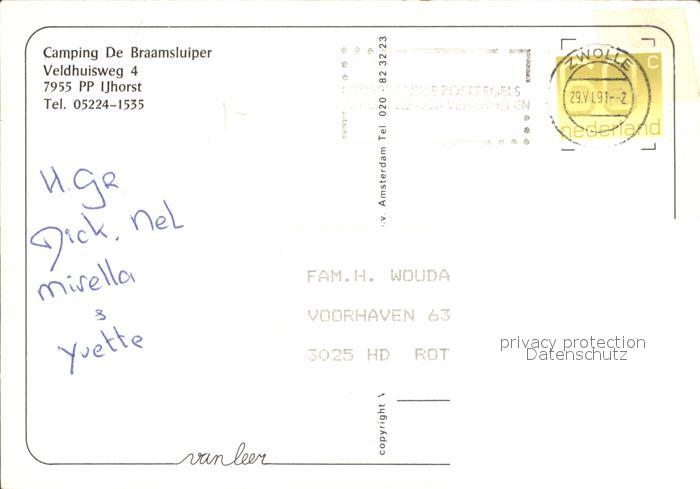 Camping De Braamsluiper
Veldhuisweg 4
7955 PP IJhorst
Tel. 05224-1535
H. Gr.
Dick, Nel
Mirella
&
Yvette
v. Amsterdam Tel. 020 82 32-23
copyright
van leer
POSTZEGELS
OOK VERZAMELEN
ZWOLLE
29.VI.91--2
60 c
nederland
FAM.H. WOUDA
VOORHAVEN 63
3025 HD ROT
privacy protection
Datenschutz